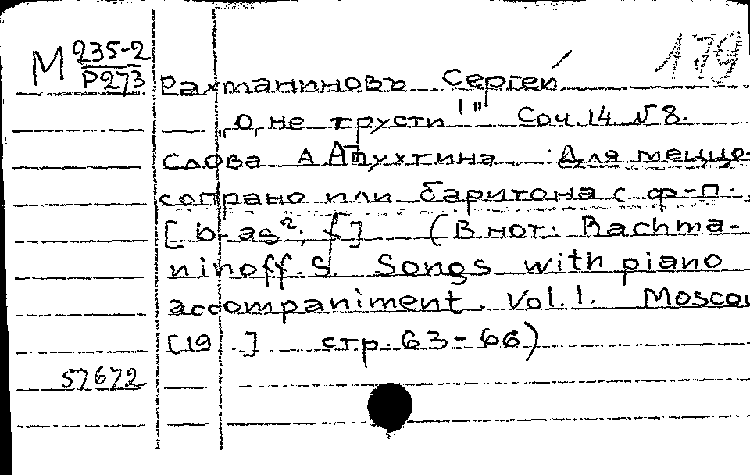 М 235-2 179
Р273 Рахманиновъ Сергей
„О, не грусти!" Соч. 14 №8.
Слова А. Апухтина. Для меццо-
сопрано или баритона с ф-п.
[b-as²; f] (В нот: Rachma-
ninoff. S. Songs with piano
accompaniment. Vol. 1. Moscou
[19 .] стр. 63-66)
57672